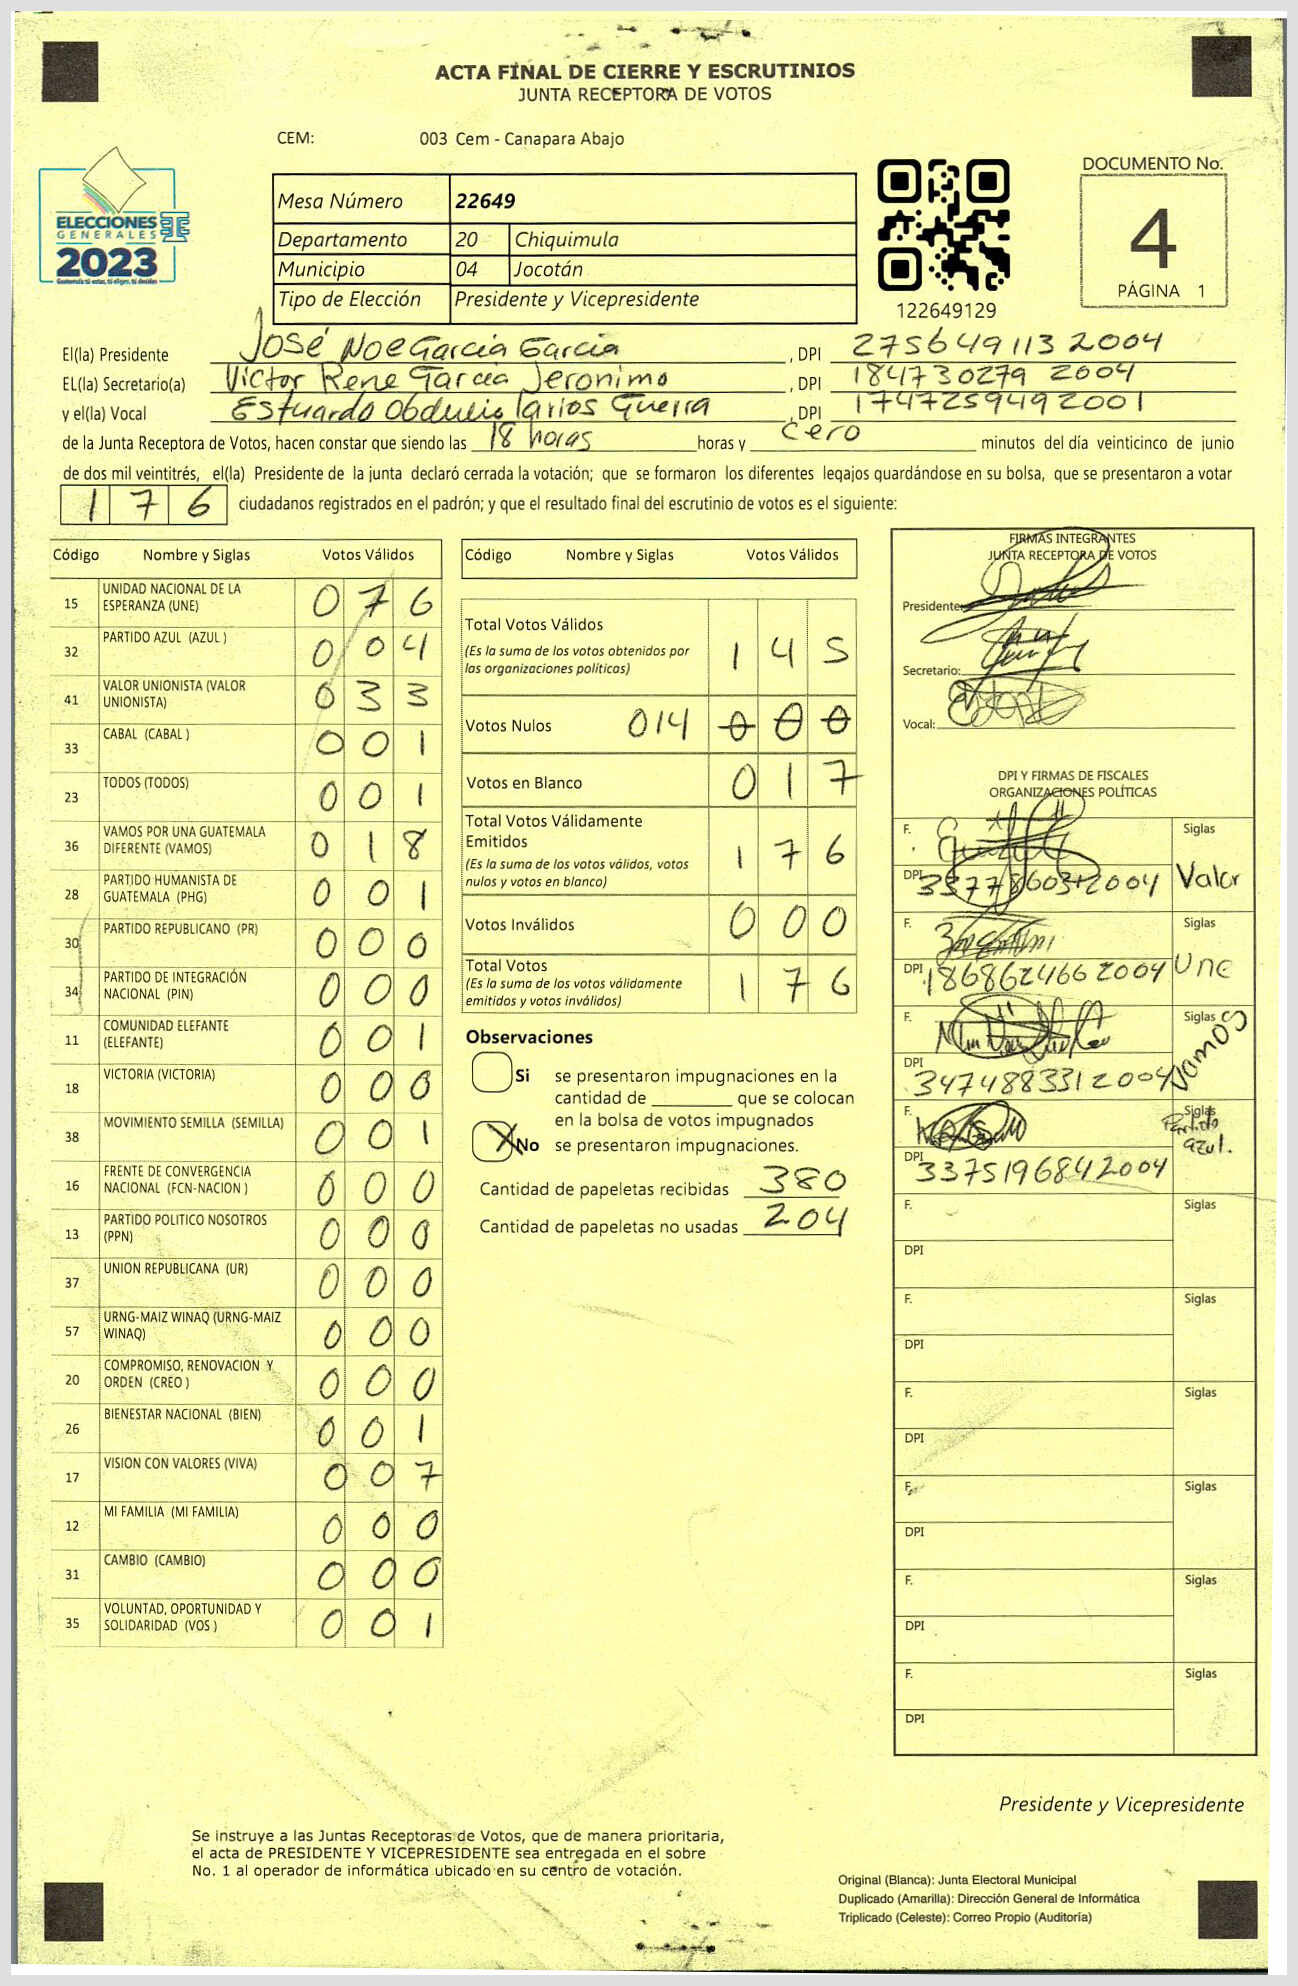 ACTA FINAL DE CIERRE Y ESCRUTINIOS
JUNTA RECEPTORA DE VOTOS
CEM: 003 Cem - Canapara Abajo
ELECCIONES
GENERALES
2023
Guatemala tú votas, tú eliges, tú decides
Mesa Número 22649
Departamento 20 Chiquimula
Municipio 04 Jocotán
Tipo de Elección Presidente y Vicepresidente
122649129
DOCUMENTO No.
4
PÁGINA 1
El(la) Presidente José Noe Garcia Garcia , DPI 2756491132004
EL(la) Secretario(a) Victor Rene Garcia Jeronimo , DPI 184730279 2004
y el(la) Vocal Estuardo Obdulio Larios Guerra , DPI 1747259492001
de la Junta Receptora de Votos, hacen constar que siendo las 18 horas horas y cero minutos del día veinticinco de junio
de dos mil veintitrés, el(la) Presidente de la junta declaró cerrada la votación; que se formaron los diferentes legajos quardándose en su bolsa, que se presentaron a votar
176 ciudadanos registrados en el padrón; y que el resultado final del escrutinio de votos es el siguiente:
Código Nombre y Siglas Votos Válidos
15 UNIDAD NACIONAL DE LA ESPERANZA (UNE) 076
32 PARTIDO AZUL (AZUL ) 004
41 VALOR UNIONISTA (VALOR UNIONISTA) 033
33 CABAL (CABAL ) 001
23 TODOS (TODOS) 001
36 VAMOS POR UNA GUATEMALA DIFERENTE (VAMOS) 018
28 PARTIDO HUMANISTA DE GUATEMALA (PHG) 001
30 PARTIDO REPUBLICANO (PR) 000
34 PARTIDO DE INTEGRACIÓN NACIONAL (PIN) 000
11 COMUNIDAD ELEFANTE (ELEFANTE) 001
18 VICTORIA (VICTORIA) 000
38 MOVIMIENTO SEMILLA (SEMILLA) 001
16 FRENTE DE CONVERGENCIA NACIONAL (FCN-NACION ) 000
13 PARTIDO POLITICO NOSOTROS (PPN) 000
37 UNION REPUBLICANA (UR) 000
57 URNG-MAIZ WINAQ (URNG-MAIZ WINAQ) 000
20 COMPROMISO, RENOVACION Y ORDEN (CREO ) 000
26 BIENESTAR NACIONAL (BIEN) 001
17 VISION CON VALORES (VIVA) 007
12 MI FAMILIA (MI FAMILIA) 000
31 CAMBIO (CAMBIO) 000
35 VOLUNTAD, OPORTUNIDAD Y SOLIDARIDAD (VOS ) 001
Código Nombre y Siglas Votos Válidos
Total Votos Válidos 145
(Es la suma de los votos obtenidos por
las organizaciones políticas)
Votos Nulos 014 000
Votos en Blanco 017
Total Votos Válidamente
Emitidos 176
(Es la suma de los votos válidos, votos
nulos y votos en blanco)
Votos Inválidos 000
Total Votos 176
(Es la suma de los votos válidamente
emitidos y votos inválidos)
Observaciones
Si se presentaron impugnaciones en la
cantidad de ________ que se colocan
en la bolsa de votos impugnados
X No se presentaron impugnaciones.
Cantidad de papeletas recibidas 380
Cantidad de papeletas no usadas 204
FIRMAS INTEGRANTES
JUNTA RECEPTORA DE VOTOS
Presidente:
Secretario:
Vocal:
DPI Y FIRMAS DE FISCALES
ORGANIZACIONES POLÍTICAS
F. Siglas
DPI 2004 Valor
F. Siglas
DPI 1868624662004 Une
F. Siglas Vamos
DPI 3474883312004
F. Siglas Partido azul.
DPI 3375196842004
F. Siglas
DPI
F. Siglas
DPI
F. Siglas
DPI
F. Siglas
DPI
F. Siglas
DPI
F. Siglas
DPI
Presidente y Vicepresidente
Se instruye a las Juntas Receptoras de Votos, que de manera prioritaria,
el acta de PRESIDENTE Y VICEPRESIDENTE sea entregada en el sobre
No. 1 al operador de informática ubicado en su centro de votación.
Original (Blanca): Junta Electoral Municipal
Duplicado (Amarilla): Dirección General de Informática
Triplicado (Celeste): Correo Propio (Auditoría)